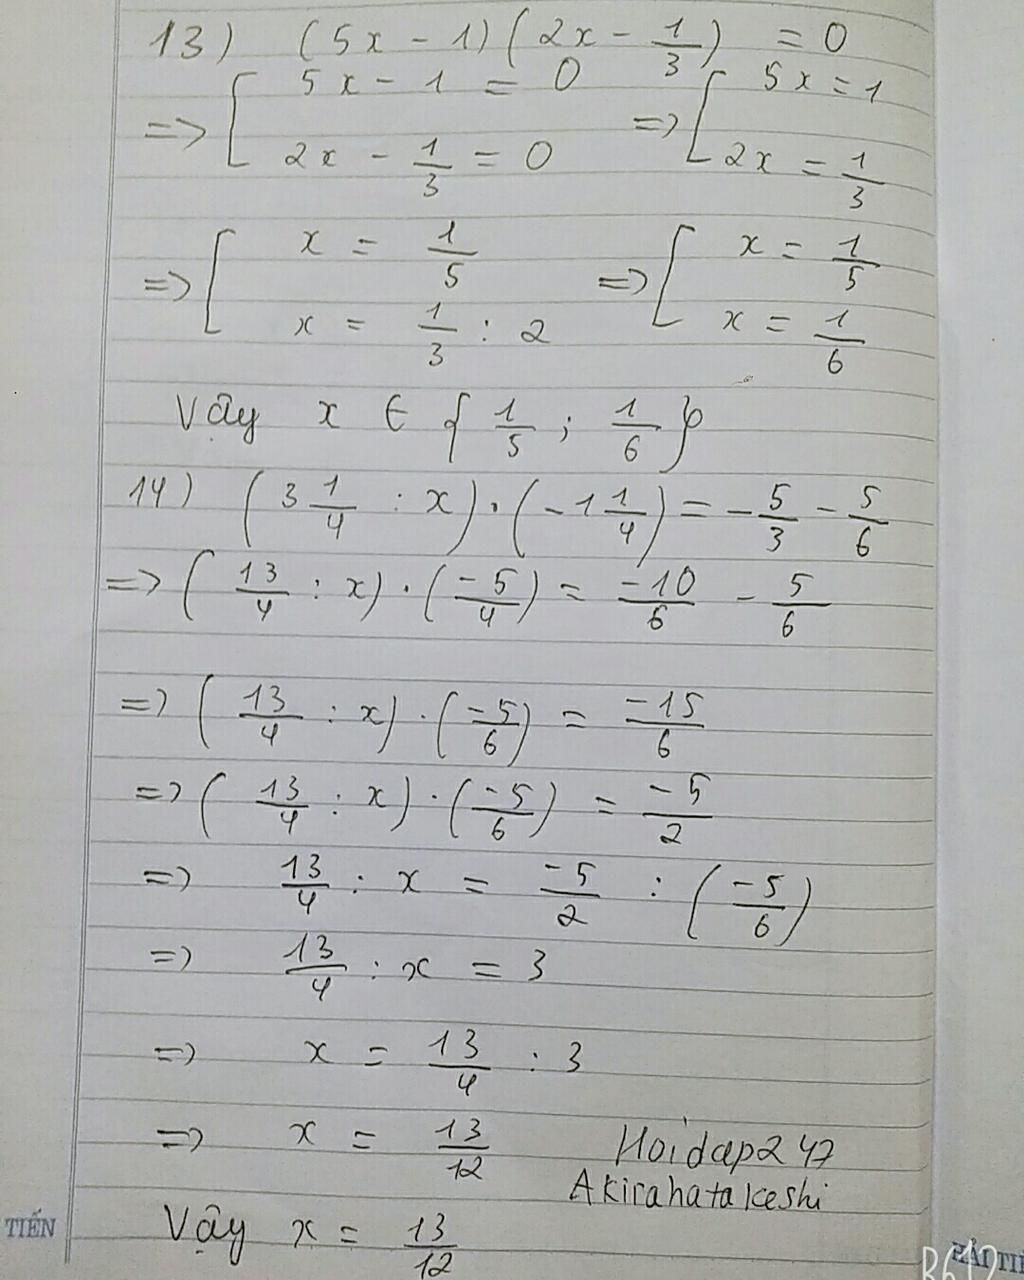 13) (5x - 1)(2x - 1/3) = 0
=> [ 5x - 1 = 0 => [ 5x = 1
2x - 1/3 = 0 2x = 1/3
=> [ x = 1/5 => [ x = 1/5
x = 1/3 : 2 x = 1/6
Vậy x ∈ { 1/5 ; 1/6 }
14) (3 1/4 : x) . (-1 1/4) = - 5/3 - 5/6
=> (13/4 : x) . (-5/4) = -10/6 - 5/6
=> (13/4 : x) . (-5/6) = -15/6
=> (13/4 : x) . (-5/6) = -5/2
=> 13/4 : x = -5/2 : (-5/6)
=> 13/4 : x = 3
=> x = 13/4 : 3
=> x = 13/12
Hoidap247
Akirahatakeshi
Vậy x = 13/12
TIẾN
HẢI TIẾ
B612